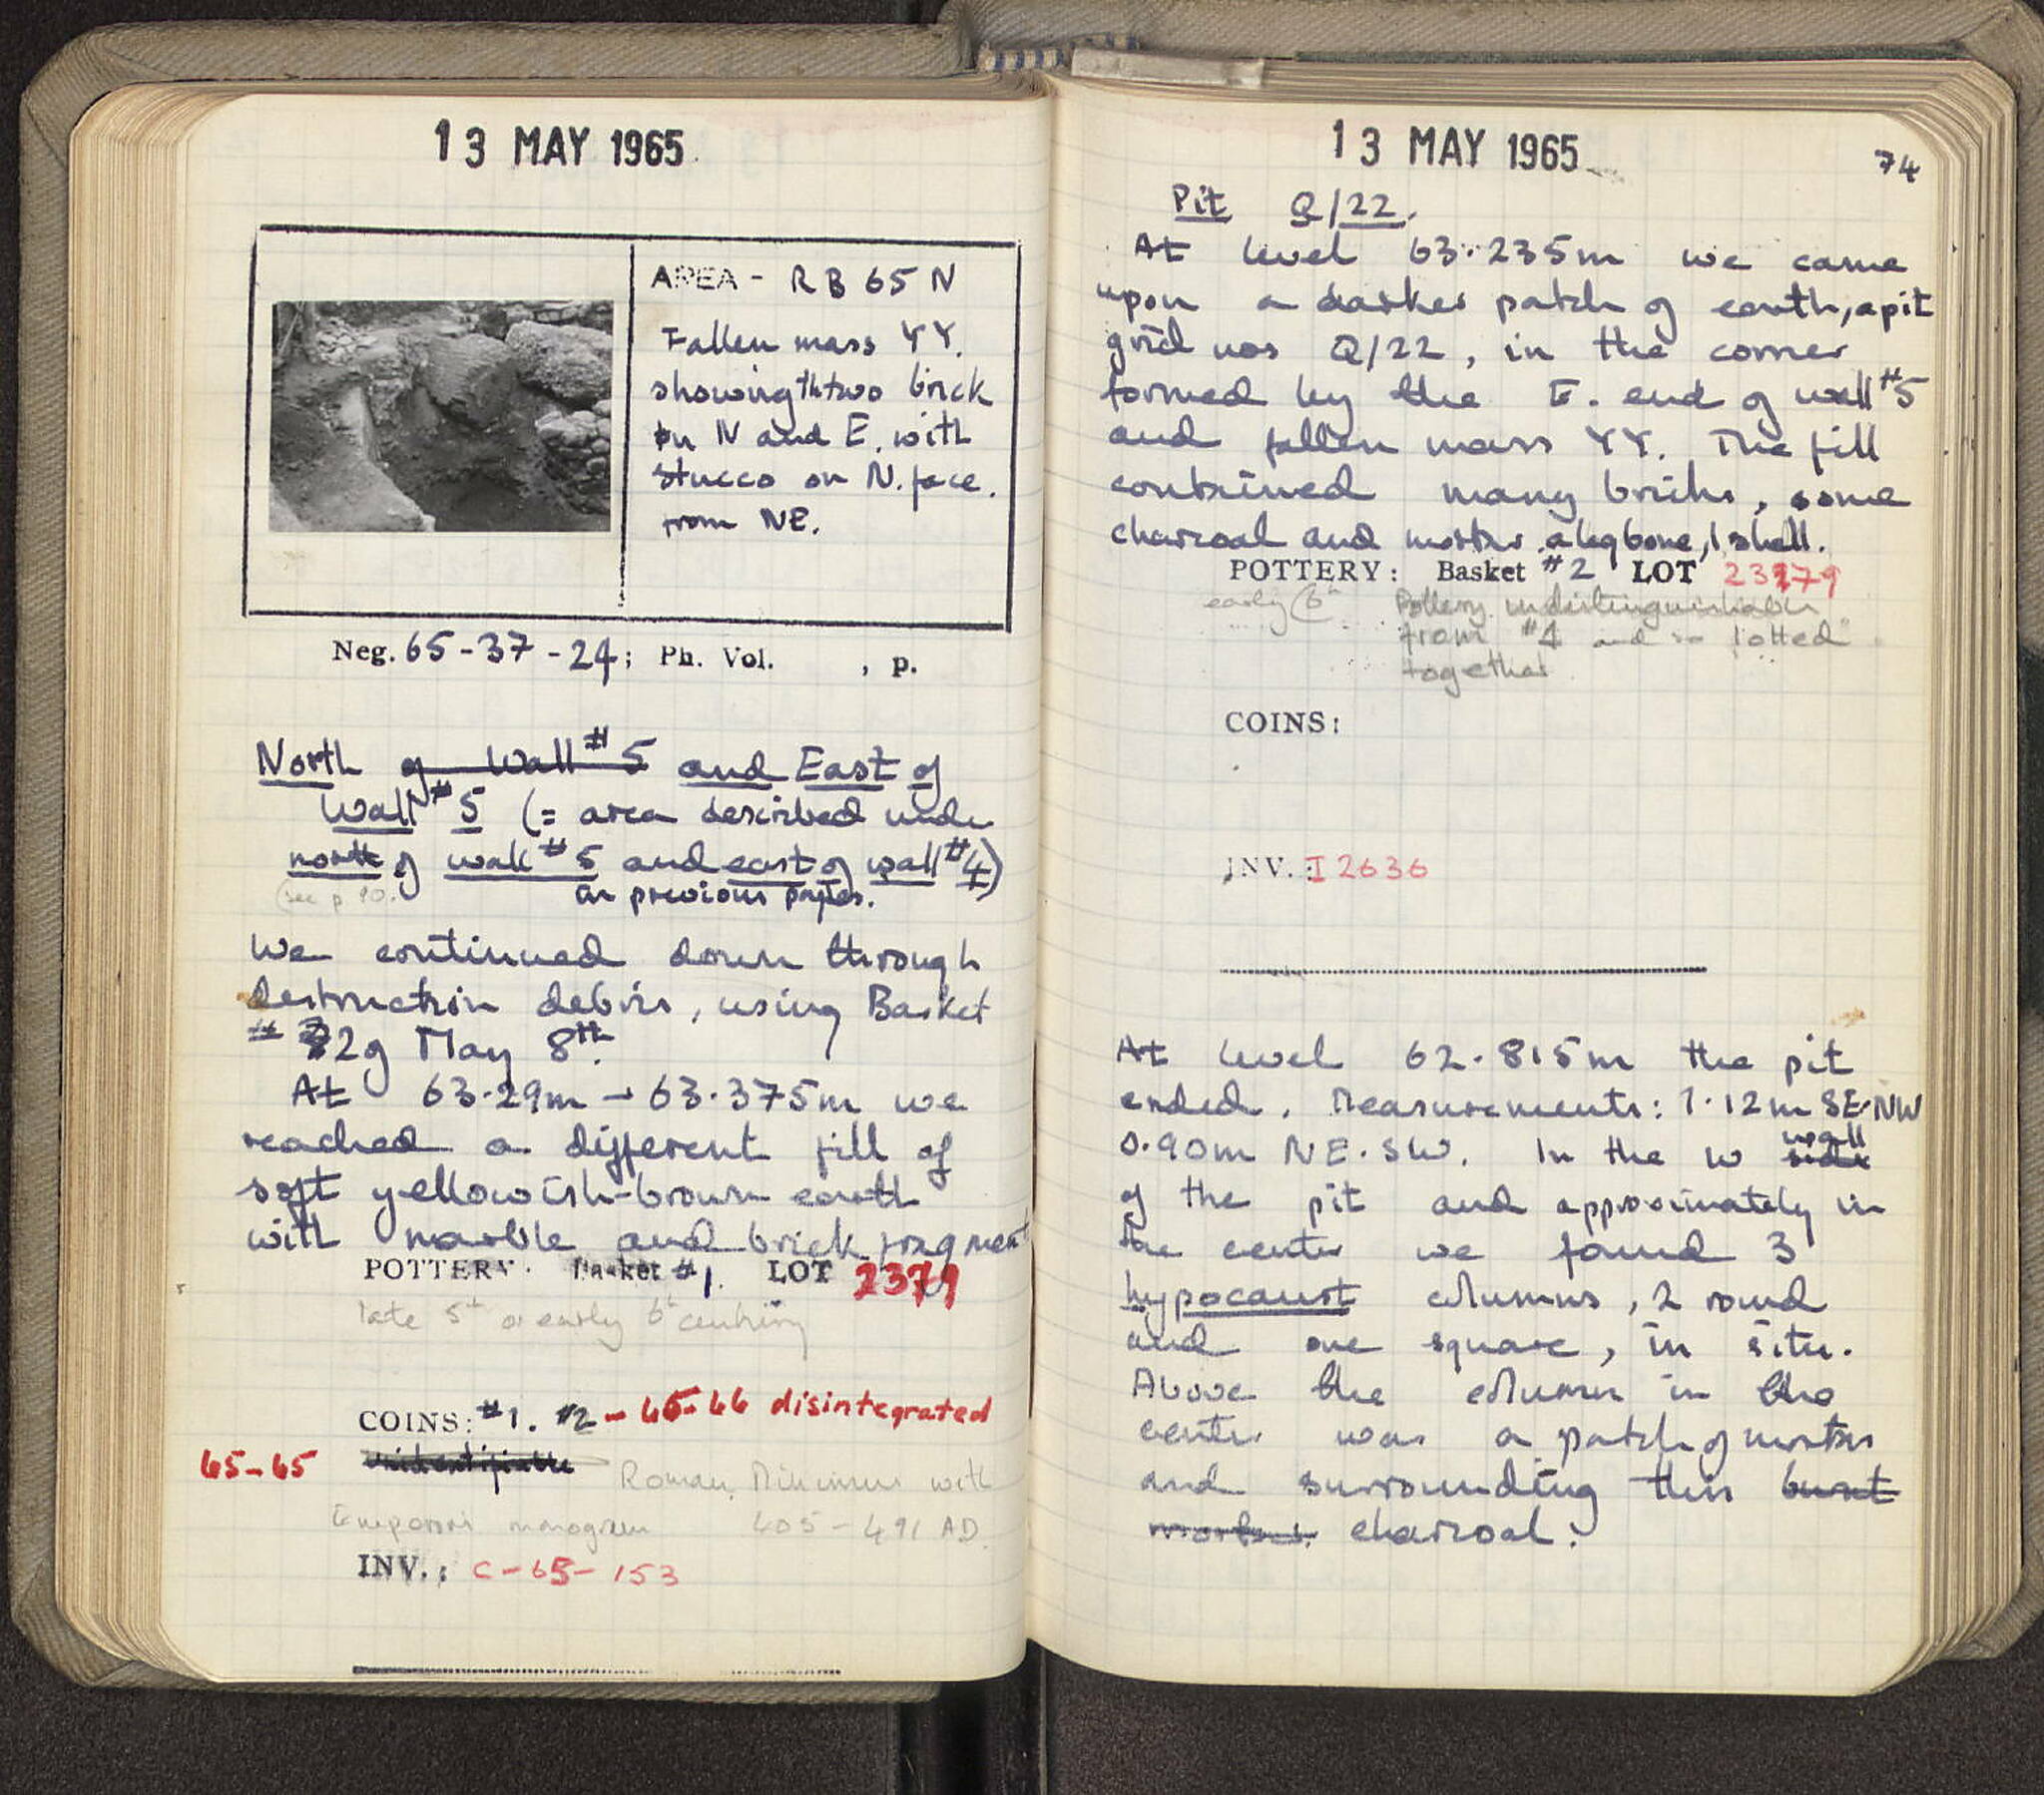 13 MAY 1965
AREA - RB 65 N
Fallen mass YY.
showing the two brick
on N and E. with
stucco on N. face.
from NE.
Neg. 65-37-24; Ph. Vol. , p.
North of Wall #5 and East of
Wall #5 (= area described under
north of wall #5 and east of wall #4)
(see p 90.) on previous pages.
We continued down through
destruction debris, using Basket
# 32 of May 8th.
At 63.29m → 63.375m we
reached a different fill of
soft yellowish-brown earth
with marble and brick fragment
POTTERY: Basket #1. LOT 2379
late 5th or early 6th century
COINS: #1. #2 - 65-66 disintegrated
65-65 unidentifiable Roman, Minimus with
Emperor's monogram 405-491 AD.
INV.: C-65-153
13 MAY 1965
74
Pit Q/22.
At level 63.235m we came
upon a darker patch of earth, a pit
grid nos Q/22, in the corner
formed by the E. end of wall #5
and fallen mass YY. The fill
contained many bricks, some
charcoal and mortar, a leg bone, 1 shell.
POTTERY: Basket #2 LOT 2379
early 6th Pottery indistinguishable
from #1 and so lotted
together
COINS:
INV.: I 2636
At level 62.815m the pit
ended. Measurements: 1.12m SE-NW
0.90m NE.SW. In the W side wall
of the pit and approximately in
the center we found 3
hypocaust columns, 2 round
and one square, in situ.
Above the column in the
center was a patch of mortar
and surrounding this burnt
mortar. charcoal.